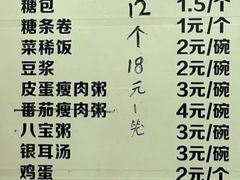 糖包 1.5/个
糖条卷 1元/个
菜稀饭 2元/碗
豆浆 2元/碗
皮蛋瘦肉粥 3元/碗
番茄瘦肉粥 4元/碗
八宝粥 3元/碗
银耳汤 3元/碗
鸡蛋 2元/个
12个18元一笼